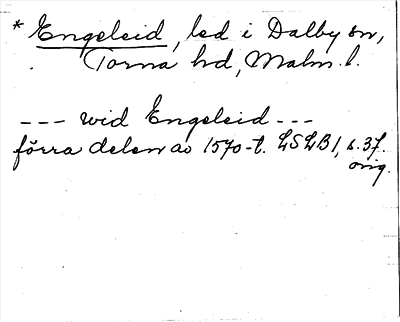 * Engeleid, led i Dalby sn,
Torna hd, Malm. l.
--- wid Engeleid ---
förra delen av 1570-t. LSLB1, s. 37.
orig.